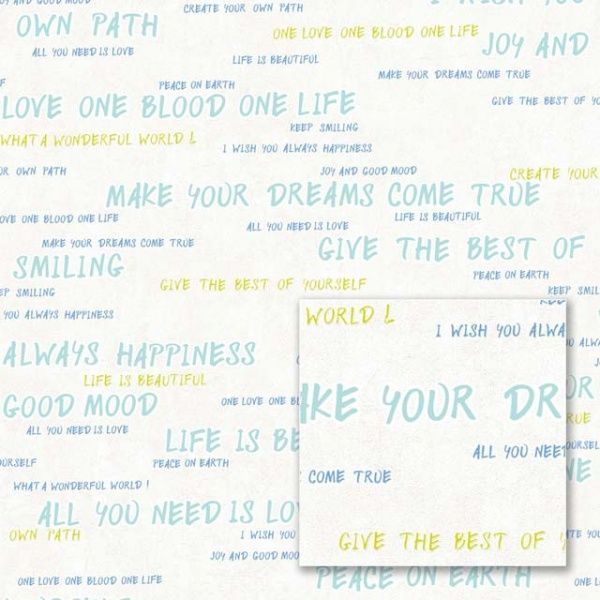 AND GOOD MOOD
CREATE YOUR OWN PATH
I WISH YOU
OWN PATH
ONE LOVE ONE BLOOD ONE LIFE
JOY AND
ALL YOU NEED IS LOVE
LIFE IS BEAUTIFUL
MAKE YOUR DREAMS COME TRUE
PEACE ON EARTH
LOVE ONE BLOOD ONE LIFE
GIVE THE BEST OF YOU
KEEP SMILING
WHAT A WONDERFUL WORLD !
I WISH YOU ALWAYS HAPPINESS
UR OWN PATH
JOY AND GOOD MOOD
CREATE YOUR
MAKE YOUR DREAMS COME TRUE
LOVE ONE BLOOD ONE LIFE
LIFE IS BEAUTIFUL
ALL YOU NEED IS LOVE
MAKE YOUR DREAMS COME TRUE
GIVE THE BEST OF
SMILING
PEACE ON EARTH
GIVE THE BEST OF YOURSELF
EP SMILING
KEEP SMIL
YOU ALWAYS HAPPINESS
WORLD !
I WISH YOU ALWA
ALWAYS HAPPINESS
LIFE IS BEAUTIFUL
GOOD MOOD
ONE LOVE ONE BL
AKE YOUR DR
OR
RUE
ALL YOU NEED IS LOVE
LIFE IS BE
ALL YOU NEE
OURSEL
OURSELF
PEACE ON EARTH
COME TRUE
NE
WHAT A WONDERFUL WORLD !
ALL YOU NEED IS LO
OWN PATH
I WISH YO
GIVE THE BEST OF Y
JOY AND GOOD MOO
ONE LOVE ONE BLOOD ONE LIFE
PEACE ON EARTH